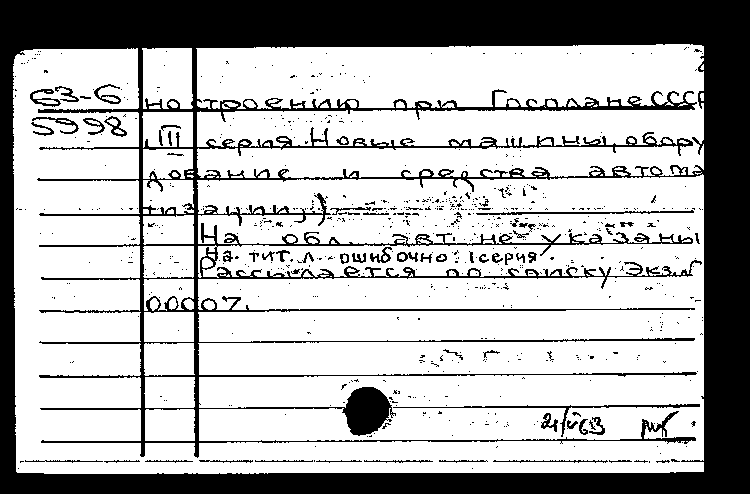 63-6 ностроению при Госплане СССР
5998 III серия. Новые машины, обору
дование и средства автома
тизации,.)
На обл. авт. не указаны
На тит. л. ошибочно: I серия.
Рассылается по списку Экз.№
00007.
21/V 63